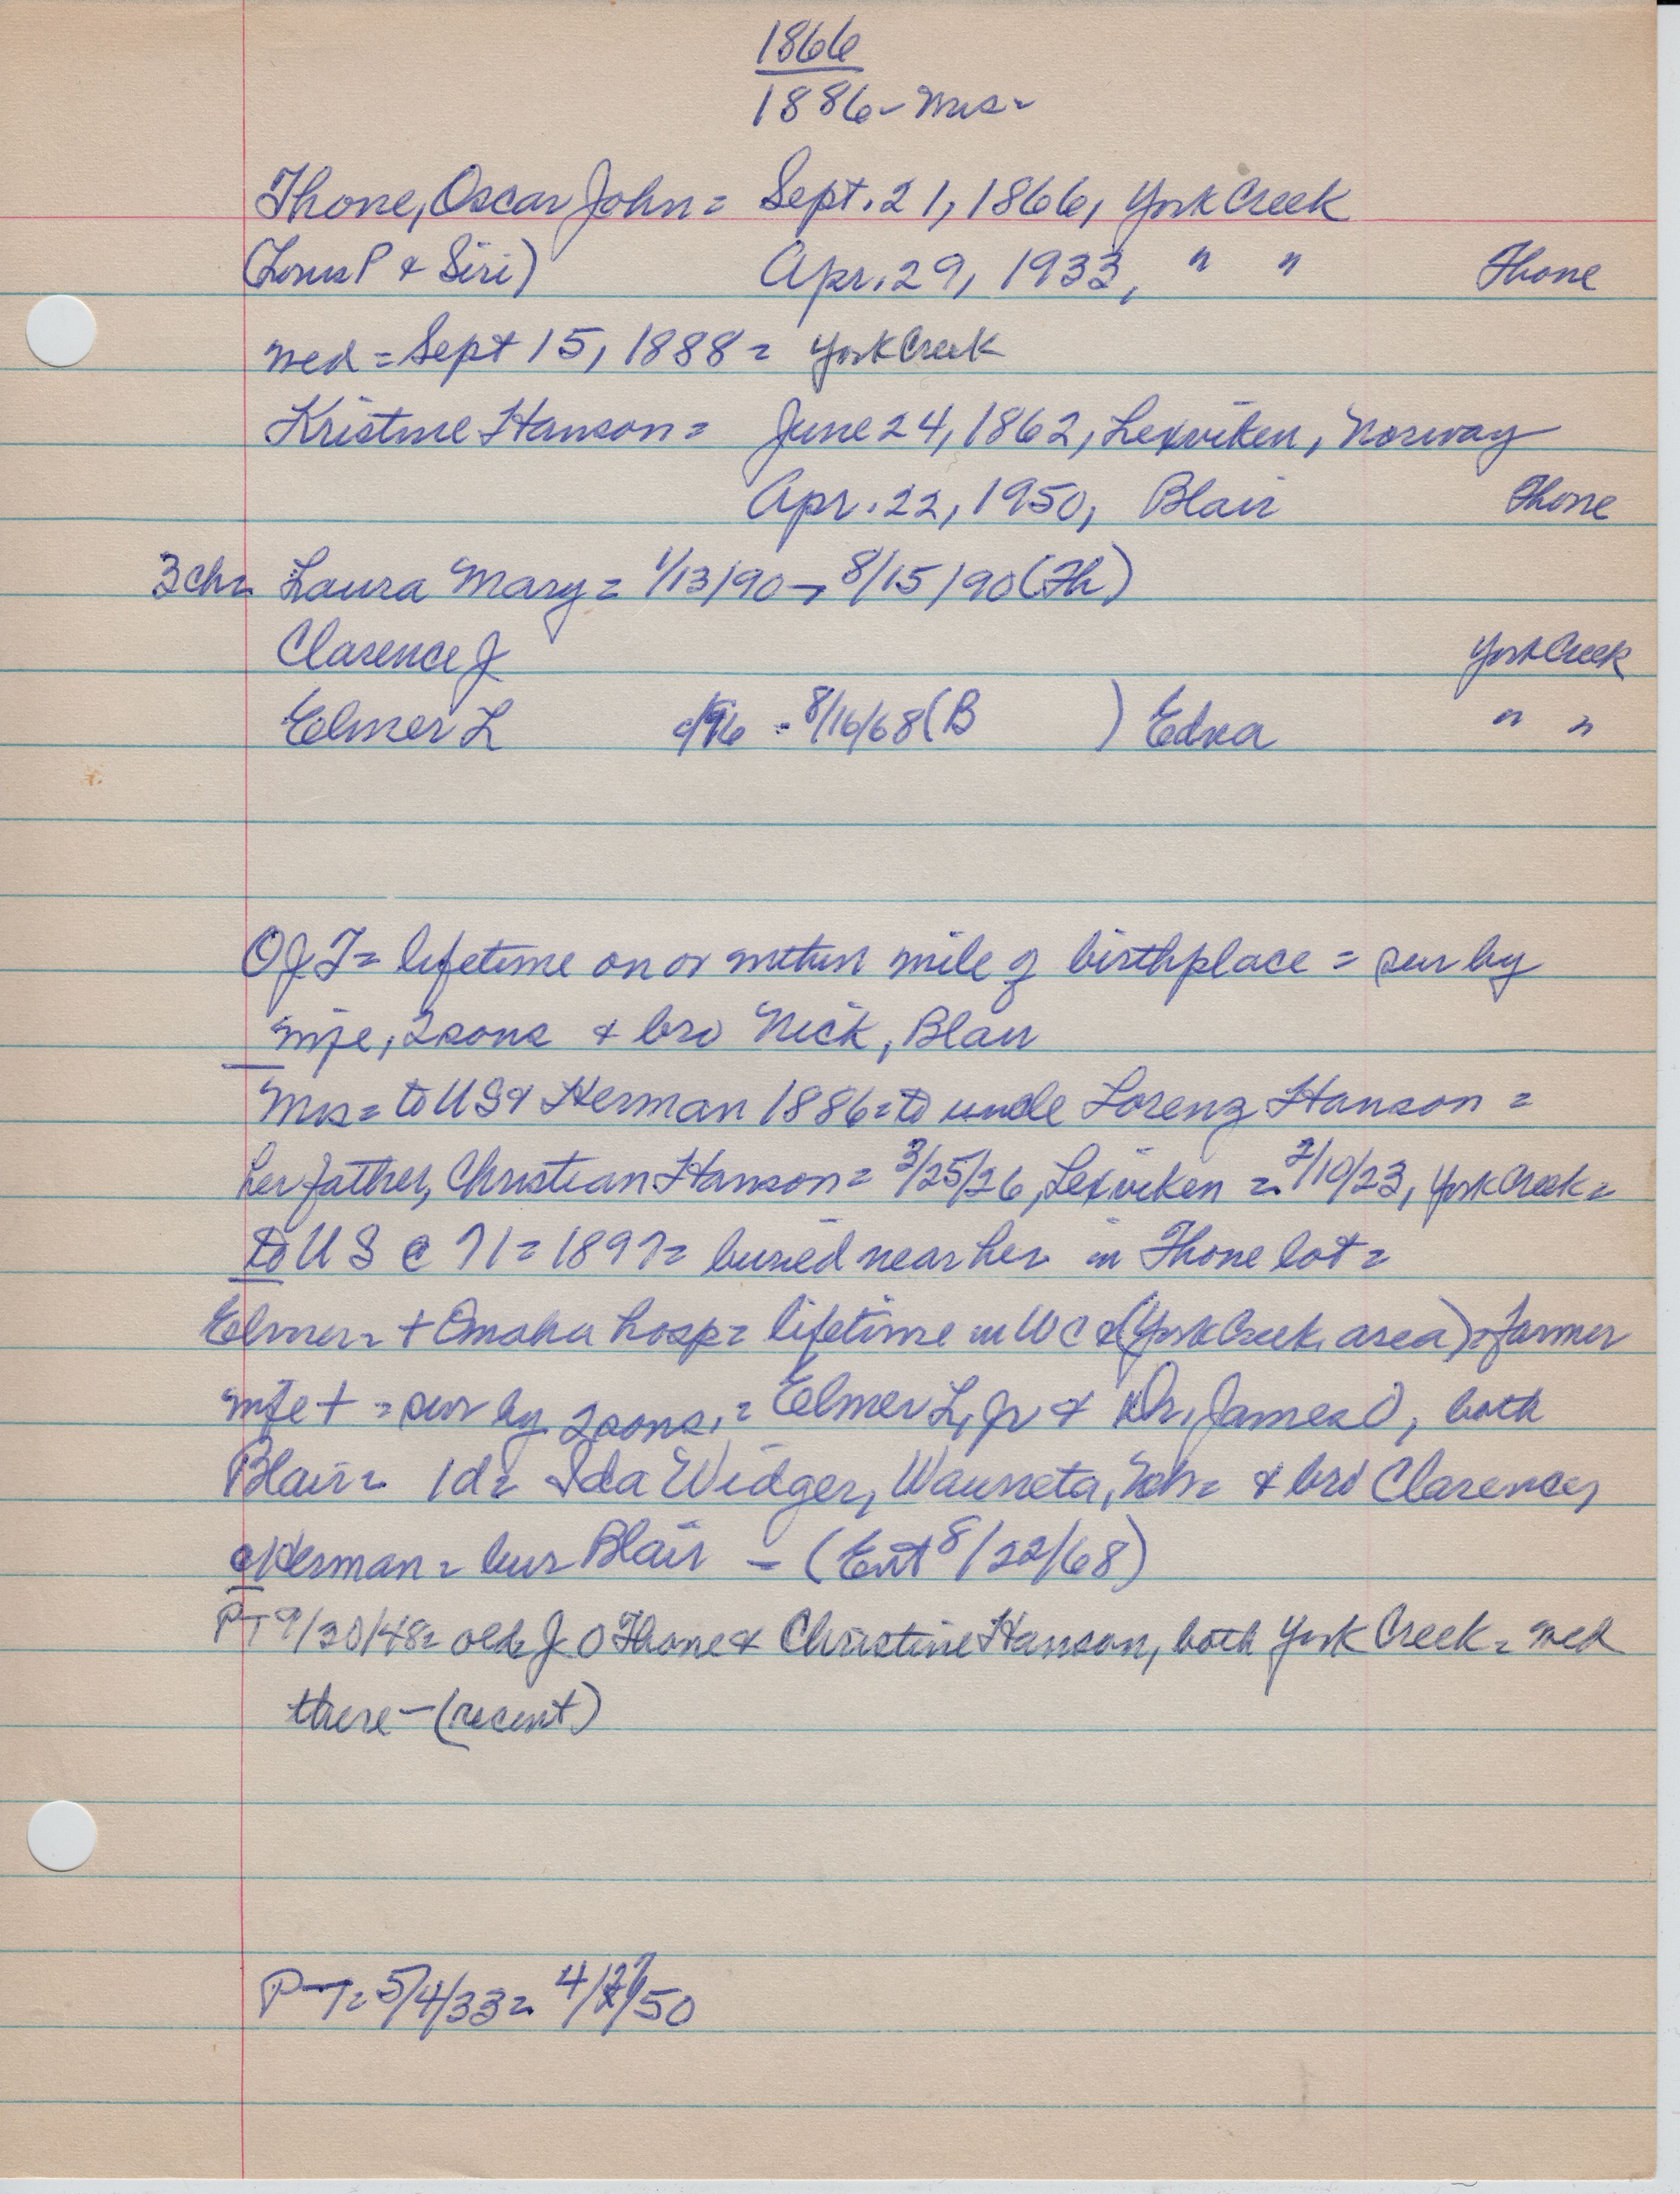 1866
1886 - Mrs -
Thone, Oscar John = Sept. 21, 1866, York Creek
(Lonus P & Siri) Apr. 29, 1933, " " Thone
wed = Sept 15, 1888 = York Creek
Kristine Hanson = June 24, 1862, Lexviken, Norway
Apr. 22, 1950, Blair Thone
3 ch = Laura Mary = 1/13/90 - 8/15/90 (Th)
Clarence J York Creek
Elmer L 96 - 8/16/68 (B ) Edna " "
OJT = lifetime on or within mile of birthplace = sur by
wife, 2 sons & bro Nick, Blair
Mrs = to US & Herman 1886 = to uncle Lorenz Hanson =
her father, Christian Hanson = 3/25/26, Lexviken = /10/23, York Creek =
to US @ 71 = 1897 = buried near her in Thone lot =
Elmer = + Omaha hosp = lifetime in WC & (York Creek area) = farmer
wife + = sur by 2 sons, = Elmer L, Jr & Dr. James O, both
Blair = 1d = Ida Widger, Wauneta, Neb = & bro Clarence,
Herman = bur Blair - (Ent 8/22/68)
PT 9/30/48 = old = J O Thone & Christine Hanson, both York Creek = wed
there - (recent)
P-T = 5/4/33 = 4/27/50